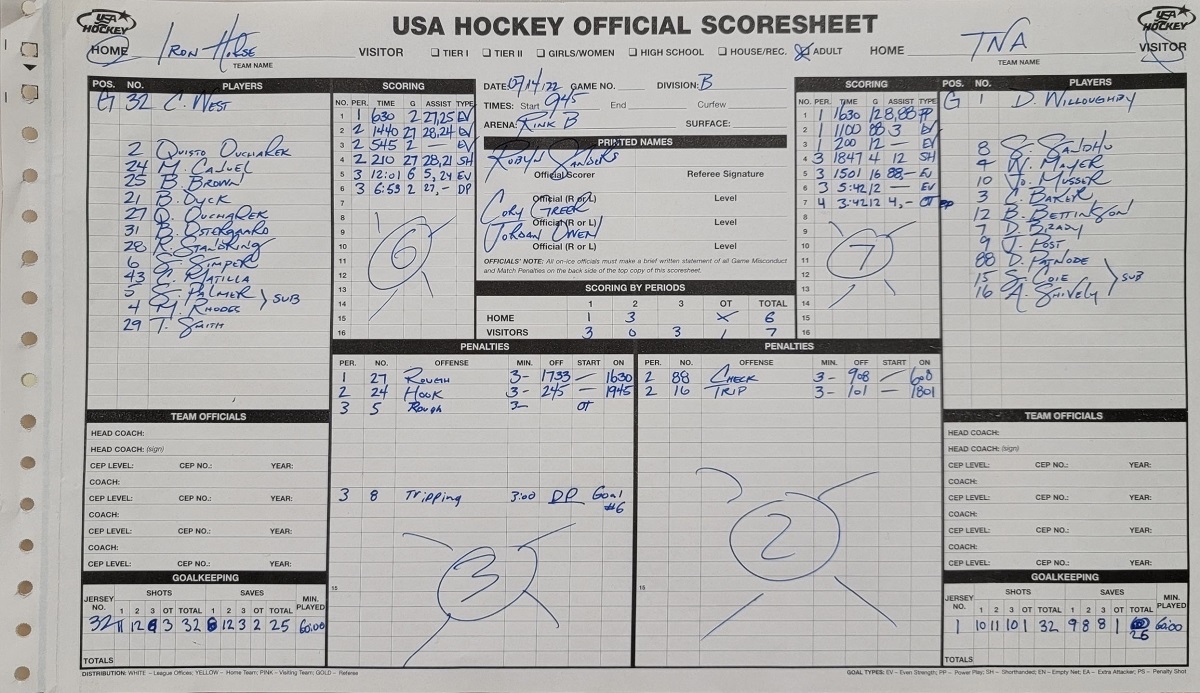 USA HOCKEY
USA HOCKEY OFFICIAL SCORESHEET
USA HOCKEY
HOME Iron Horse VISITOR
TEAM NAME
☐ TIER I ☐ TIER II ☐ GIRLS/WOMEN ☐ HIGH SCHOOL ☐ HOUSE/REC. ☒ ADULT
HOME TNA VISITOR
TEAM NAME
POS. NO. PLAYERS
G 32 C. West
2 Quisto Oucharek
24
25 B. Brown
21 B. Dyck
27 Q. Oucharek
31 B. Ostergaard
28 R. Standring
6 S. Simper
43 C. Matilla
5 S. Palmer
4 M. Rhodes
SUB
29 T. Smith
SCORING
NO. PER. TIME G ASSIST TYPE
1 1 630 2 27,25 EV
2 2 1440 27 28,24 EV
3 2 545 2 — EV
4 2 210 27 28,21 SH
5 3 12:01 6 5,24 EV
6 3 6:53 2 27,- DP
7
8
9
10
11
12
13
14
15
16
6
DATE: 07/14/22 GAME NO. DIVISION: B
TIMES: Start 945 End Curfew
ARENA: Rink B SURFACE:
PRINTED NAMES
Robyn Sanders
Official Scorer Referee Signature
Official (R or L) Level
Cory Greer
Official (R or L) Level
Jordan Owen
Official (R or L) Level
OFFICIALS' NOTE: All on-ice officials must make a brief written statement of all Game Misconduct
and Match Penalties on the back side of the top copy of this scoresheet.
SCORING BY PERIODS
1 2 3 OT TOTAL
HOME 1 3 X 6
VISITORS 3 0 3 1 7
SCORING
NO. PER. TIME G ASSIST TYPE
1 1 1630 12 8,88 PP
2 1 1100 88 3 EV
3 1 200 12 — EV
4 3 1847 4 12 SH
5 3 1501 16 88— EV
6 3 5:42 12 — EV
7 4 3:42 12 4,- OT PP
8
9
10
11
12
13
14
15
16
7
POS. NO. PLAYERS
G 1 D. Willoughby
8 S. Sandhu
4 W. Mayer
10 Jo. Musser
3 C. Baker
12 B. Bettingson
7 D. Brady
9 J. Post
88 D. Patnode
15 S. Cole
16 A. Shively
SUB
PENALTIES
PER. NO. OFFENSE MIN. OFF START ON
1 27 Rough 3- 1733 — 1630
2 24 Hook 3- 245 — 1945
3 5 Rough 3- OT
3 8 Tripping 3:00 DP Goal
#6
15
3
PENALTIES
PER. NO. OFFENSE MIN. OFF START ON
2 88 Check 3- 908 — 608
2 16 Trip 3- 101 — 1801
15
2
TEAM OFFICIALS
HEAD COACH:
HEAD COACH: (sign)
CEP LEVEL: CEP NO.: YEAR:
COACH:
CEP LEVEL: CEP NO.: YEAR:
COACH:
CEP LEVEL: CEP NO.: YEAR:
COACH:
CEP LEVEL: CEP NO.: YEAR:
GOALKEEPING
JERSEY NO. SHOTS SAVES MIN. PLAYED
1 2 3 OT TOTAL 1 2 3 OT TOTAL
32 11 12 6 3 32 8 12 3 2 25 60:00
TOTALS
TEAM OFFICIALS
HEAD COACH:
HEAD COACH: (sign)
CEP LEVEL: CEP NO.: YEAR:
COACH:
CEP LEVEL: CEP NO.: YEAR:
COACH:
CEP LEVEL: CEP NO.: YEAR:
COACH:
CEP LEVEL: CEP NO.: YEAR:
GOALKEEPING
JERSEY NO. SHOTS SAVES MIN. PLAYED
1 2 3 OT TOTAL 1 2 3 OT TOTAL
1 10 11 10 1 32 9 8 8 1 26 60:00
TOTALS
DISTRIBUTION: WHITE – League Offices; YELLOW – Home Team; PINK – Visiting Team; GOLD – Referee
GOAL TYPES: EV – Even Strength; PP – Power Play; SH – Shorthanded; EN – Empty Net; EA – Extra Attacker; PS – Penalty Shot